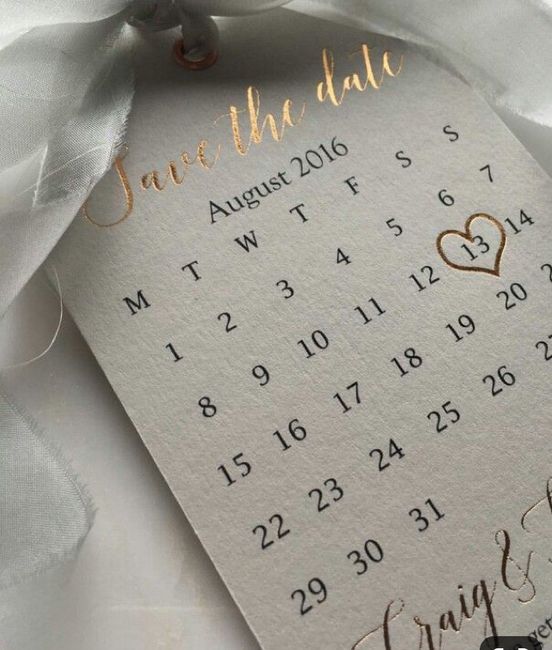 Save the date
August 2016
M T W T F S S
1 2 3 4 5 6 7
8 9 10 11 12 13 14
15 16 17 18 19 20
22 23 24 25 26
29 30 31
Craig &